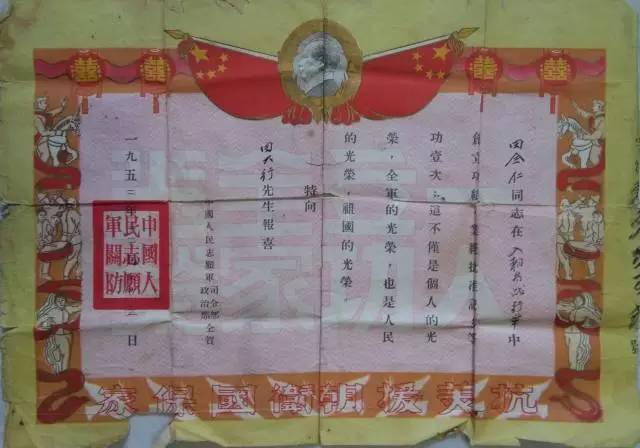 囍 囍 囍 囍
田金仁同志在入朝行軍中
創立功績業經批准等
功壹次,這不僅是個人的光
榮,全軍的光榮,也是人民
的光榮,祖國的光榮。
特向
田大行先生報喜
中國人民志願軍司令部
政治部仝賀
一九五二年日
中國人
民志願
軍關防
抗美援朝衛國保家